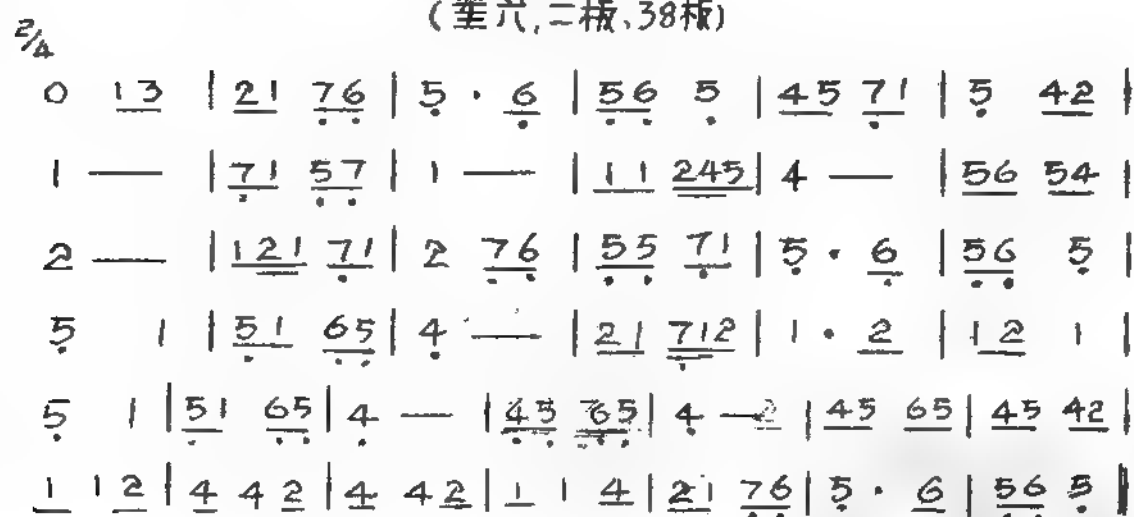 (重六,二板、38板)
2/4
0 13 | 21 76 | 5 · 6 | 56 5 | 45 71 | 5 42 |
1 — | 71 57 | 1 — | 11 245 | 4 — | 56 54 |
2 — | 121 71 | 2 76 | 55 71 | 5 · 6 | 56 5 |
5 1 | 51 65 | 4 — | 21 712 | 1 · 2 | 12 1 |
5 1 | 51 65 | 4 — | 45 765 | 4 — 2 | 45 65 | 45 42 |
1 1 2 | 4 4 2 | 4 4 2 | 1 1 4 | 21 76 | 5 · 6 | 56 5 ‖